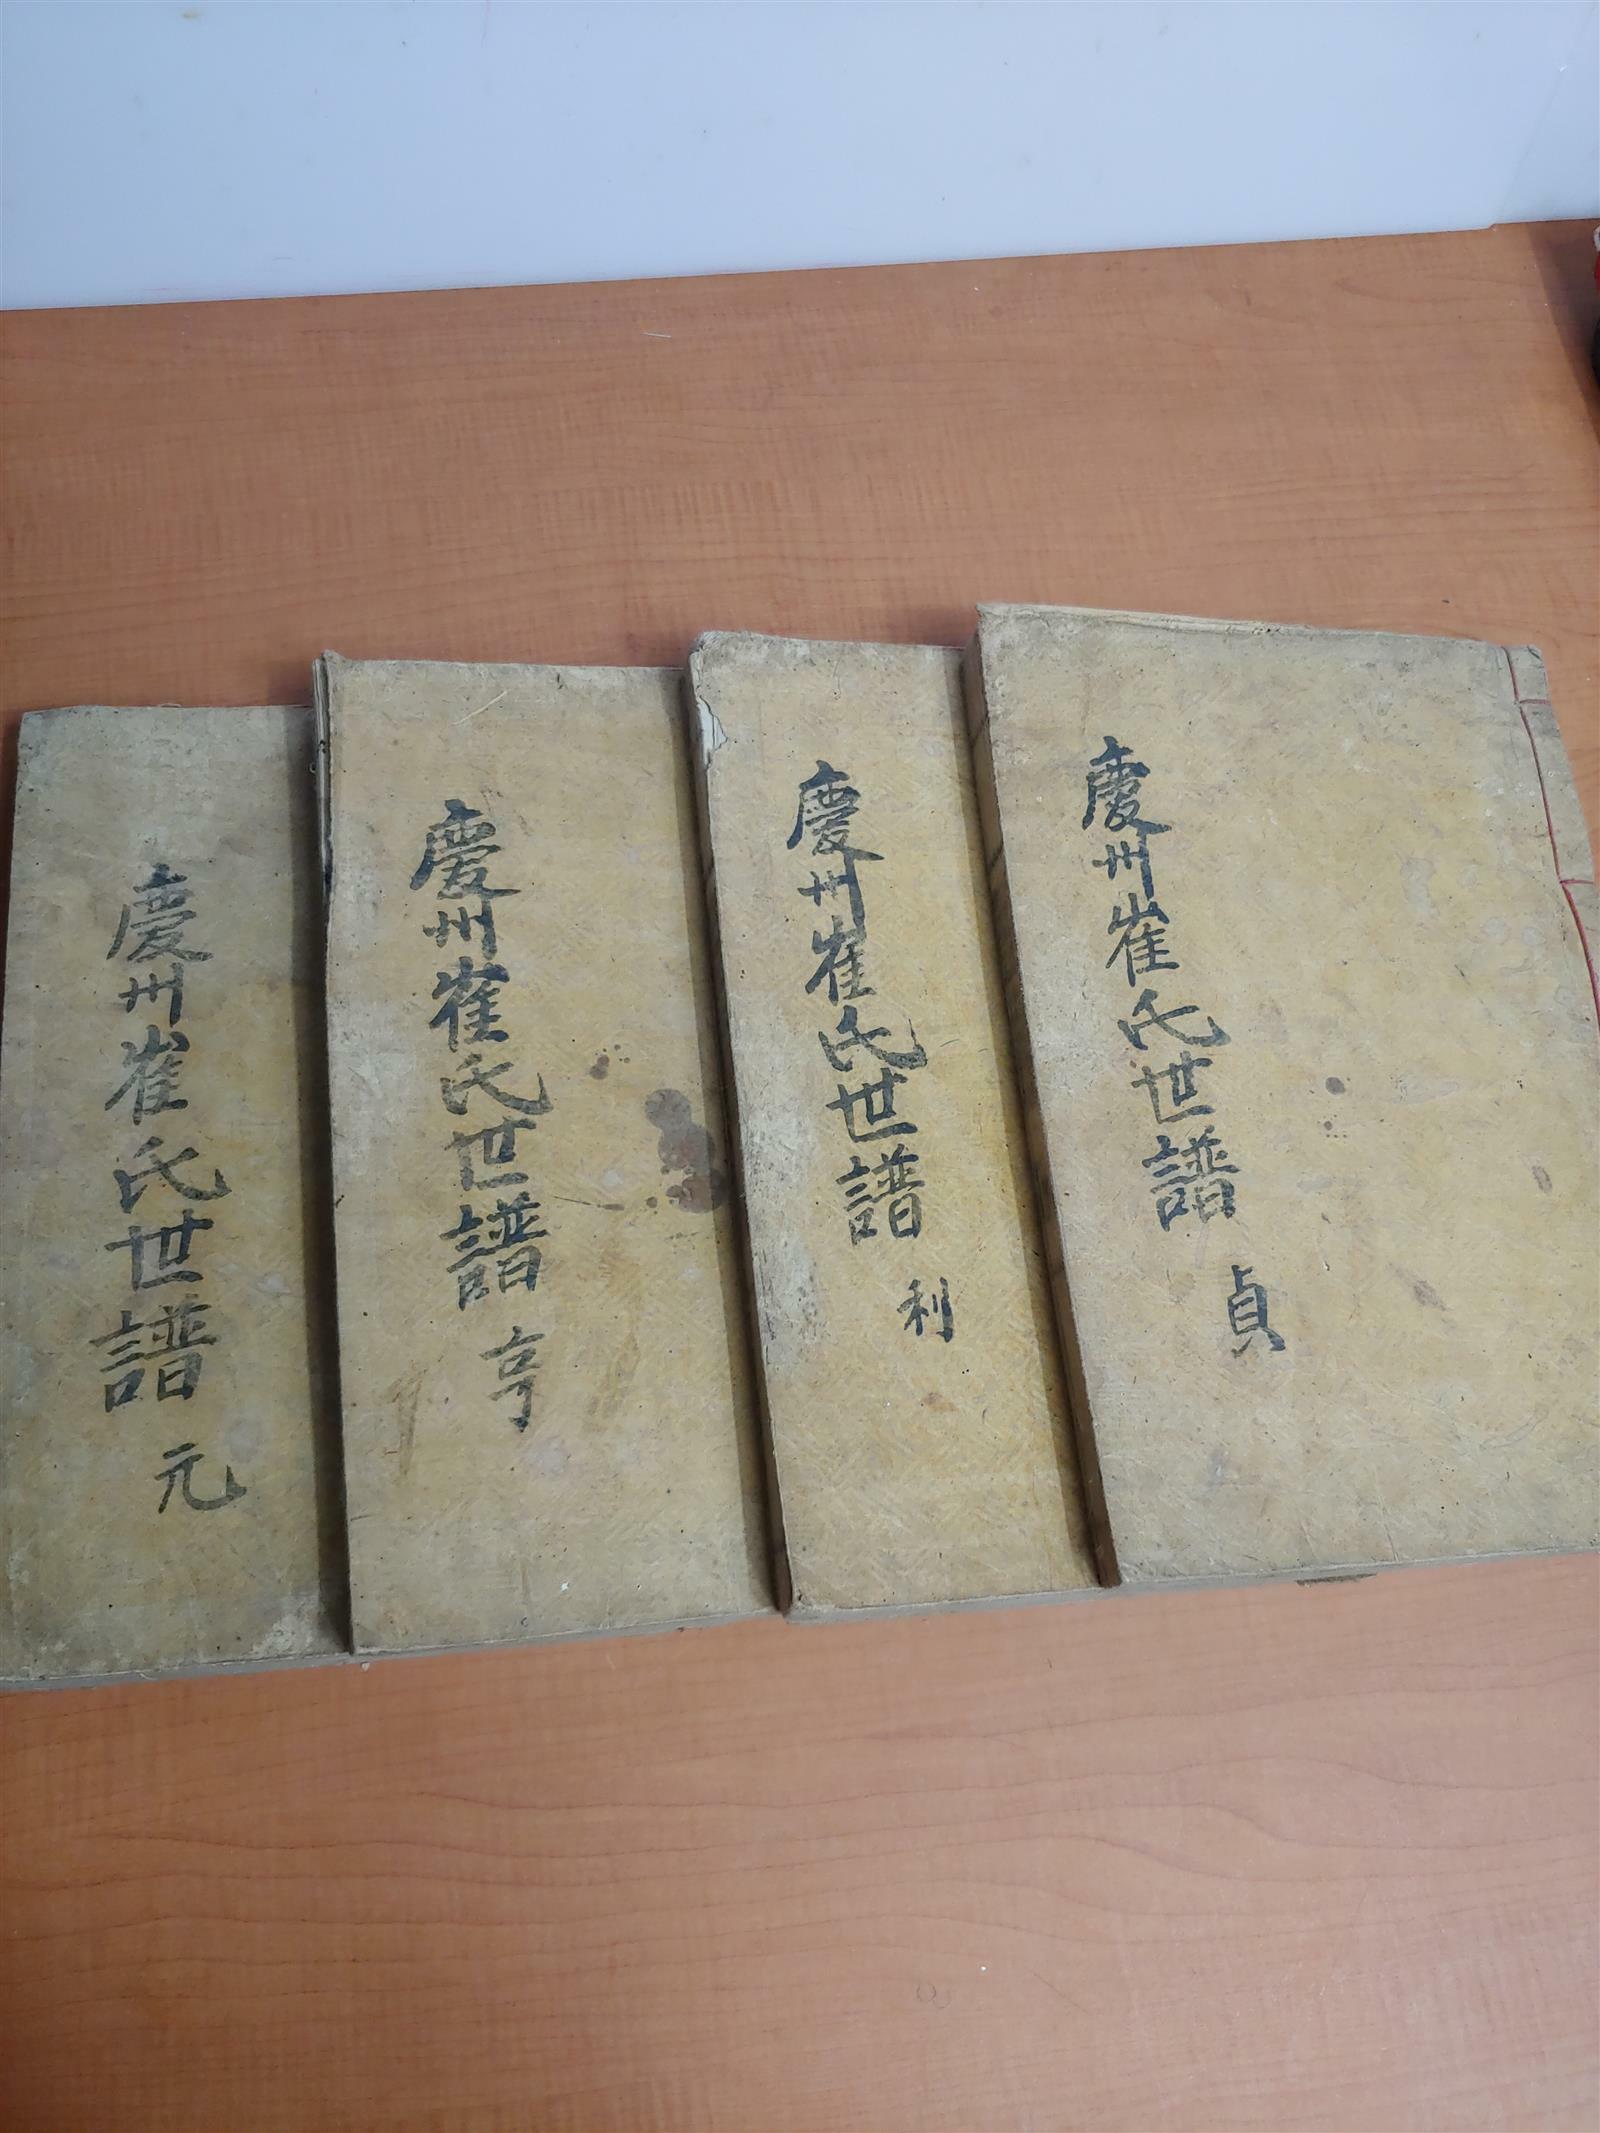 慶州崔氏世譜 元
慶州崔氏世譜 亨
慶州崔氏世譜 利
慶州崔氏世譜 貞